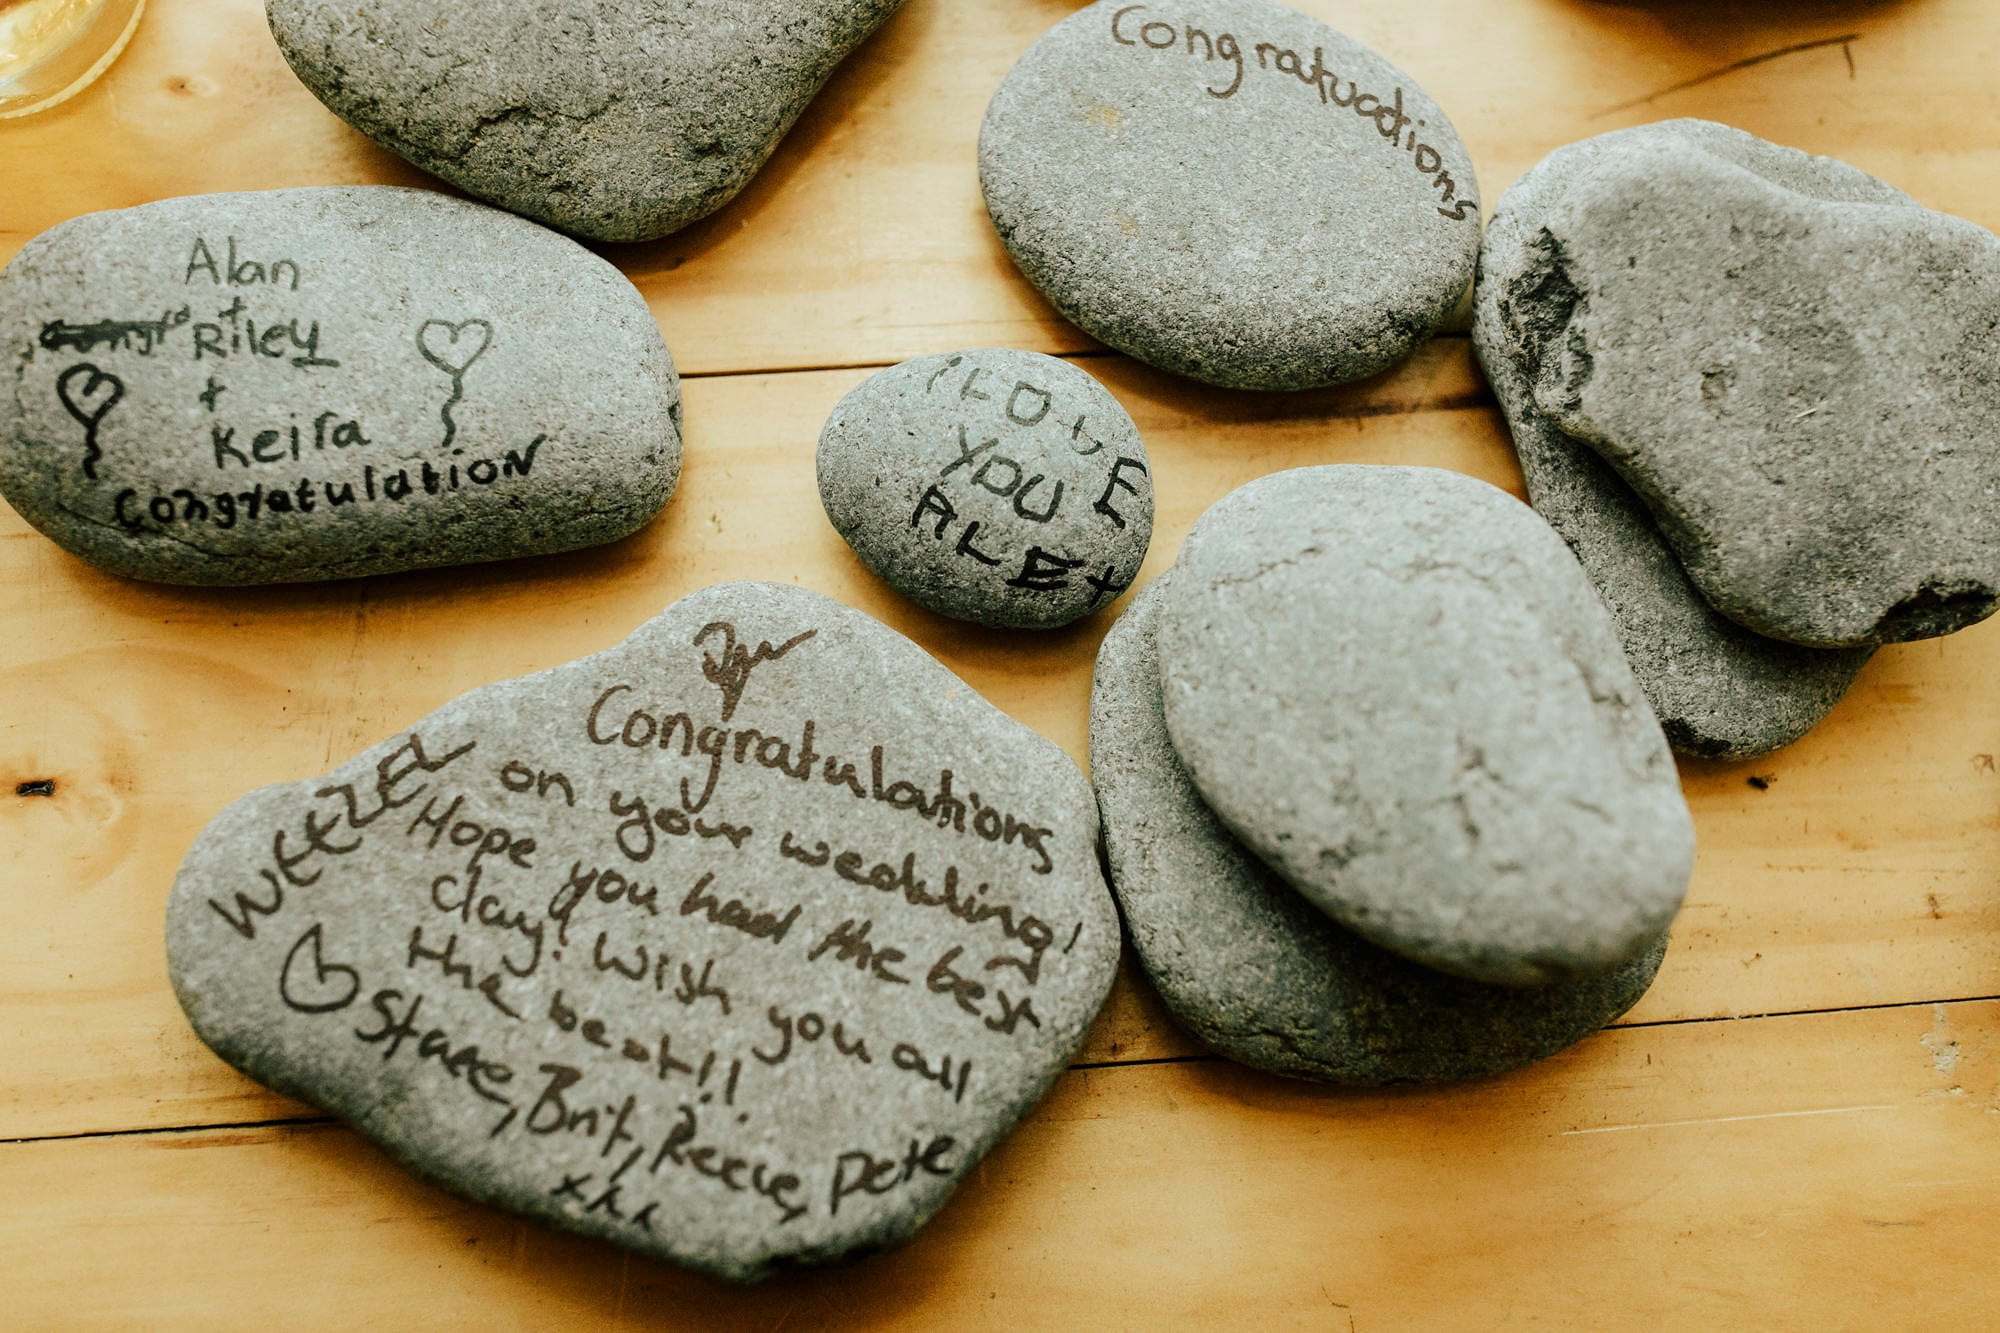 Congratuations
Alan
+
Riley
+
Keira
Congratulation
I LOVE
YOU
ALEX
Congratulations
on your wedding!
Hope you had the best
day! Wish you all
the best!!
Brit, Reece, Pete
xxx
WEEZEL